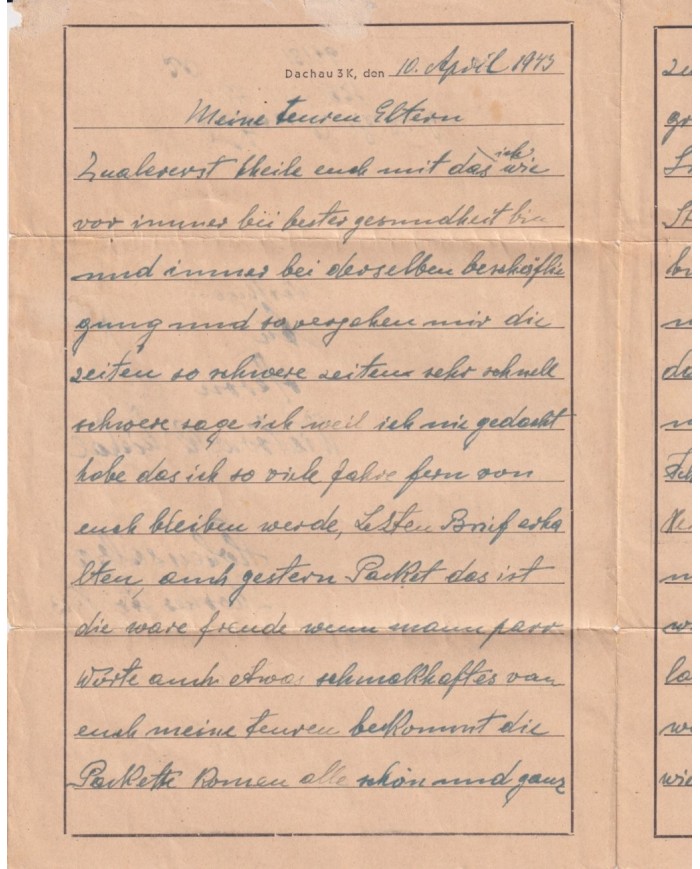 Dachau 3K, den 10. April 1943
Meine teuren Eltern
Zualererst theile euch mit das ich wie
vor immer bei bester gesundheit bin
und immer bei derselben beschäfti
gung und so vergehen mir die
zeiten so schwere zeiten sehr schnell
schwere sage ich weil ich nie gedacht
habe das ich so viele Jahre fern von
euch bleiben werde, Lesten Brief erha
lten, auch gestern Packet das ist
die ware freude wenn mann parr
Worte auch etwas schmakhaftes von
euch meine teuren bekommt die
Packette komen alle schön und ganz